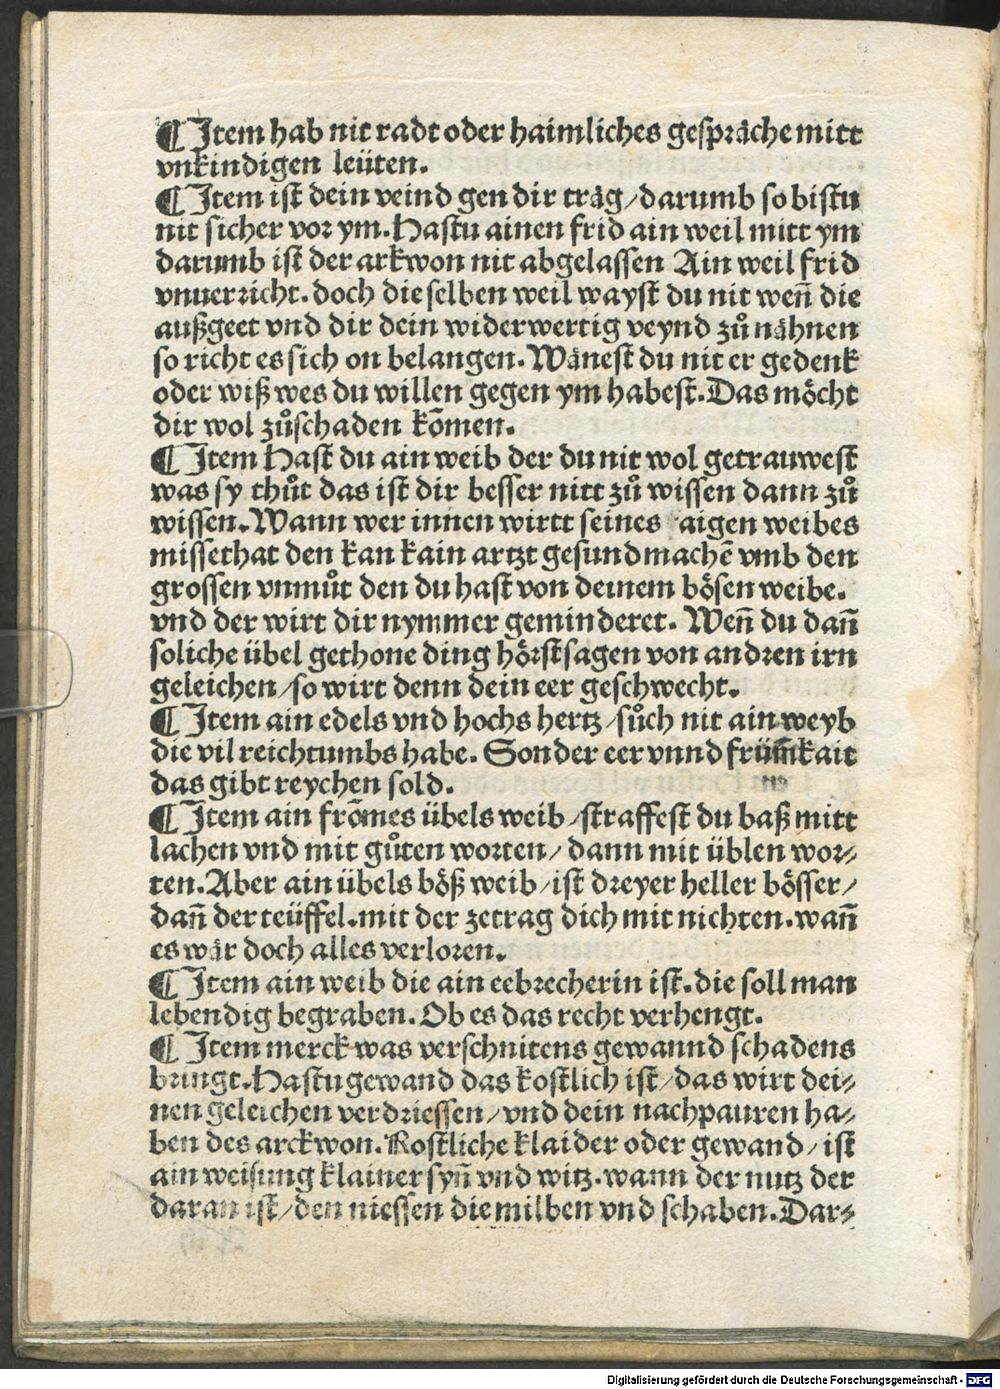 ¶ Item hab nit radt oder haimliches gespräche mitt
vnkindigen leüten.
¶ Item ist dein veind gen dir träg/darumb so bistu
nit sicher vor ym. Hastu ainen frid ain weil mitt ym
darumb ist der arkwon nit abgelassen Ain weil frid
vnuerricht. doch die selben weil wayst du nit weñ die
außgeet vnd dir dein widerwertig veynd zů nähnen
so richt es sich on belangen. Wänest du nit er gedenk
oder wiß wes du willen gegen ym habest. Das möcht
dir wol zůschaden kōmen.
¶ Item Hast du ain weib der du nit wol getrauwest
was sy thůt das ist dir besser nitt zů wissen dann zů
wissen. Wann wer innen wirtt seines aigen weibes
missethat den kan kain artzt gesund machē vmb den
grossen vnmůt den du hast von deinem bösen weibe.
vnd der wirt dir nymmer geminderet. Weñ du dañ
soliche übel gethone ding hörst sagen von andren irn
geleichen/so wirt denn dein eer geschwecht.
¶ Item ain edels vnd hochs hertz/sůch nit ain weyb
die vil reichtumbs habe. Sonder eer vnnd frümkait
das gibt reychen sold.
¶ Item ain frōmes übels weib/straffest du baß mitt
lachen vnd mit gůten worten/ dann mit üblen wor⸗
ten. Aber ain übels böß weib/ist dreyer heller bösser/
dañ der teüffel. mit der zetrag dich mit nichten. wañ
es wär doch alles verloren.
¶ Item ain weib die ain eebrecherin ist. die soll man
lebendig begraben. Ob es das recht verhengt.
¶ Item merck was verschnitens gewannd schadens
bringt. Hastu gewand das kostlich ist/das wirt dei⸗
nen geleichen verdriessen/vnd dein nachpauren ha⸗
ben des arckwon. Kostliche klaider oder gewand/ ist
ain weisung klainer syñ vnd witz. wann der nutz der
daran ist/den niessen die milben vnd schaben. Dar⸗
Digitalisierung gefördert durch die Deutsche Forschungsgemeinschaft - DFG